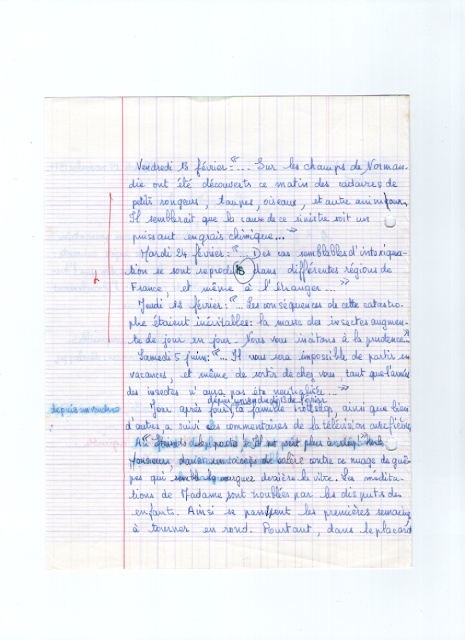 Vendredi 13 février: "... Sur les champs de Norman-
die ont été découverts ce matin des cadavres de
petits rongeurs, taupes, oiseaux, et autre animaux.
Il semblerait que la cause de ce sinistre soit un
puissant engrais chimique... "
Mardi 24 février: "... Des cas semblables d'intoxica-
tion se sont reproduits dans différentes régions de
France, et même à l'étranger... "
Jeudi 12 février: "... Les conséquences de cette catastro-
phe étaient inévitables: la masse des insectes augmen-
te de jour en jour. Nous vous incitons à la prudence... "
Samedi 5 juin: "... Il vous sera impossible de partir en
vacances, et même de sortir de chez vous tant que l'armée
des insectes n'aura pas été neutralisée... "
depuis
Jour après jour, la famille ainsi que bien
d'autres a suivi les commentaires de la télévision avec fièvre.
Monsieur, dans un de colère contre ce nuage de guê-
pes qui derrière la vitre. Les médita-
tions de Madame sont troublées par les disputes des
enfants. Ainsi se passent les premières semaines
à tourner en rond. Pourtant, dans le placard